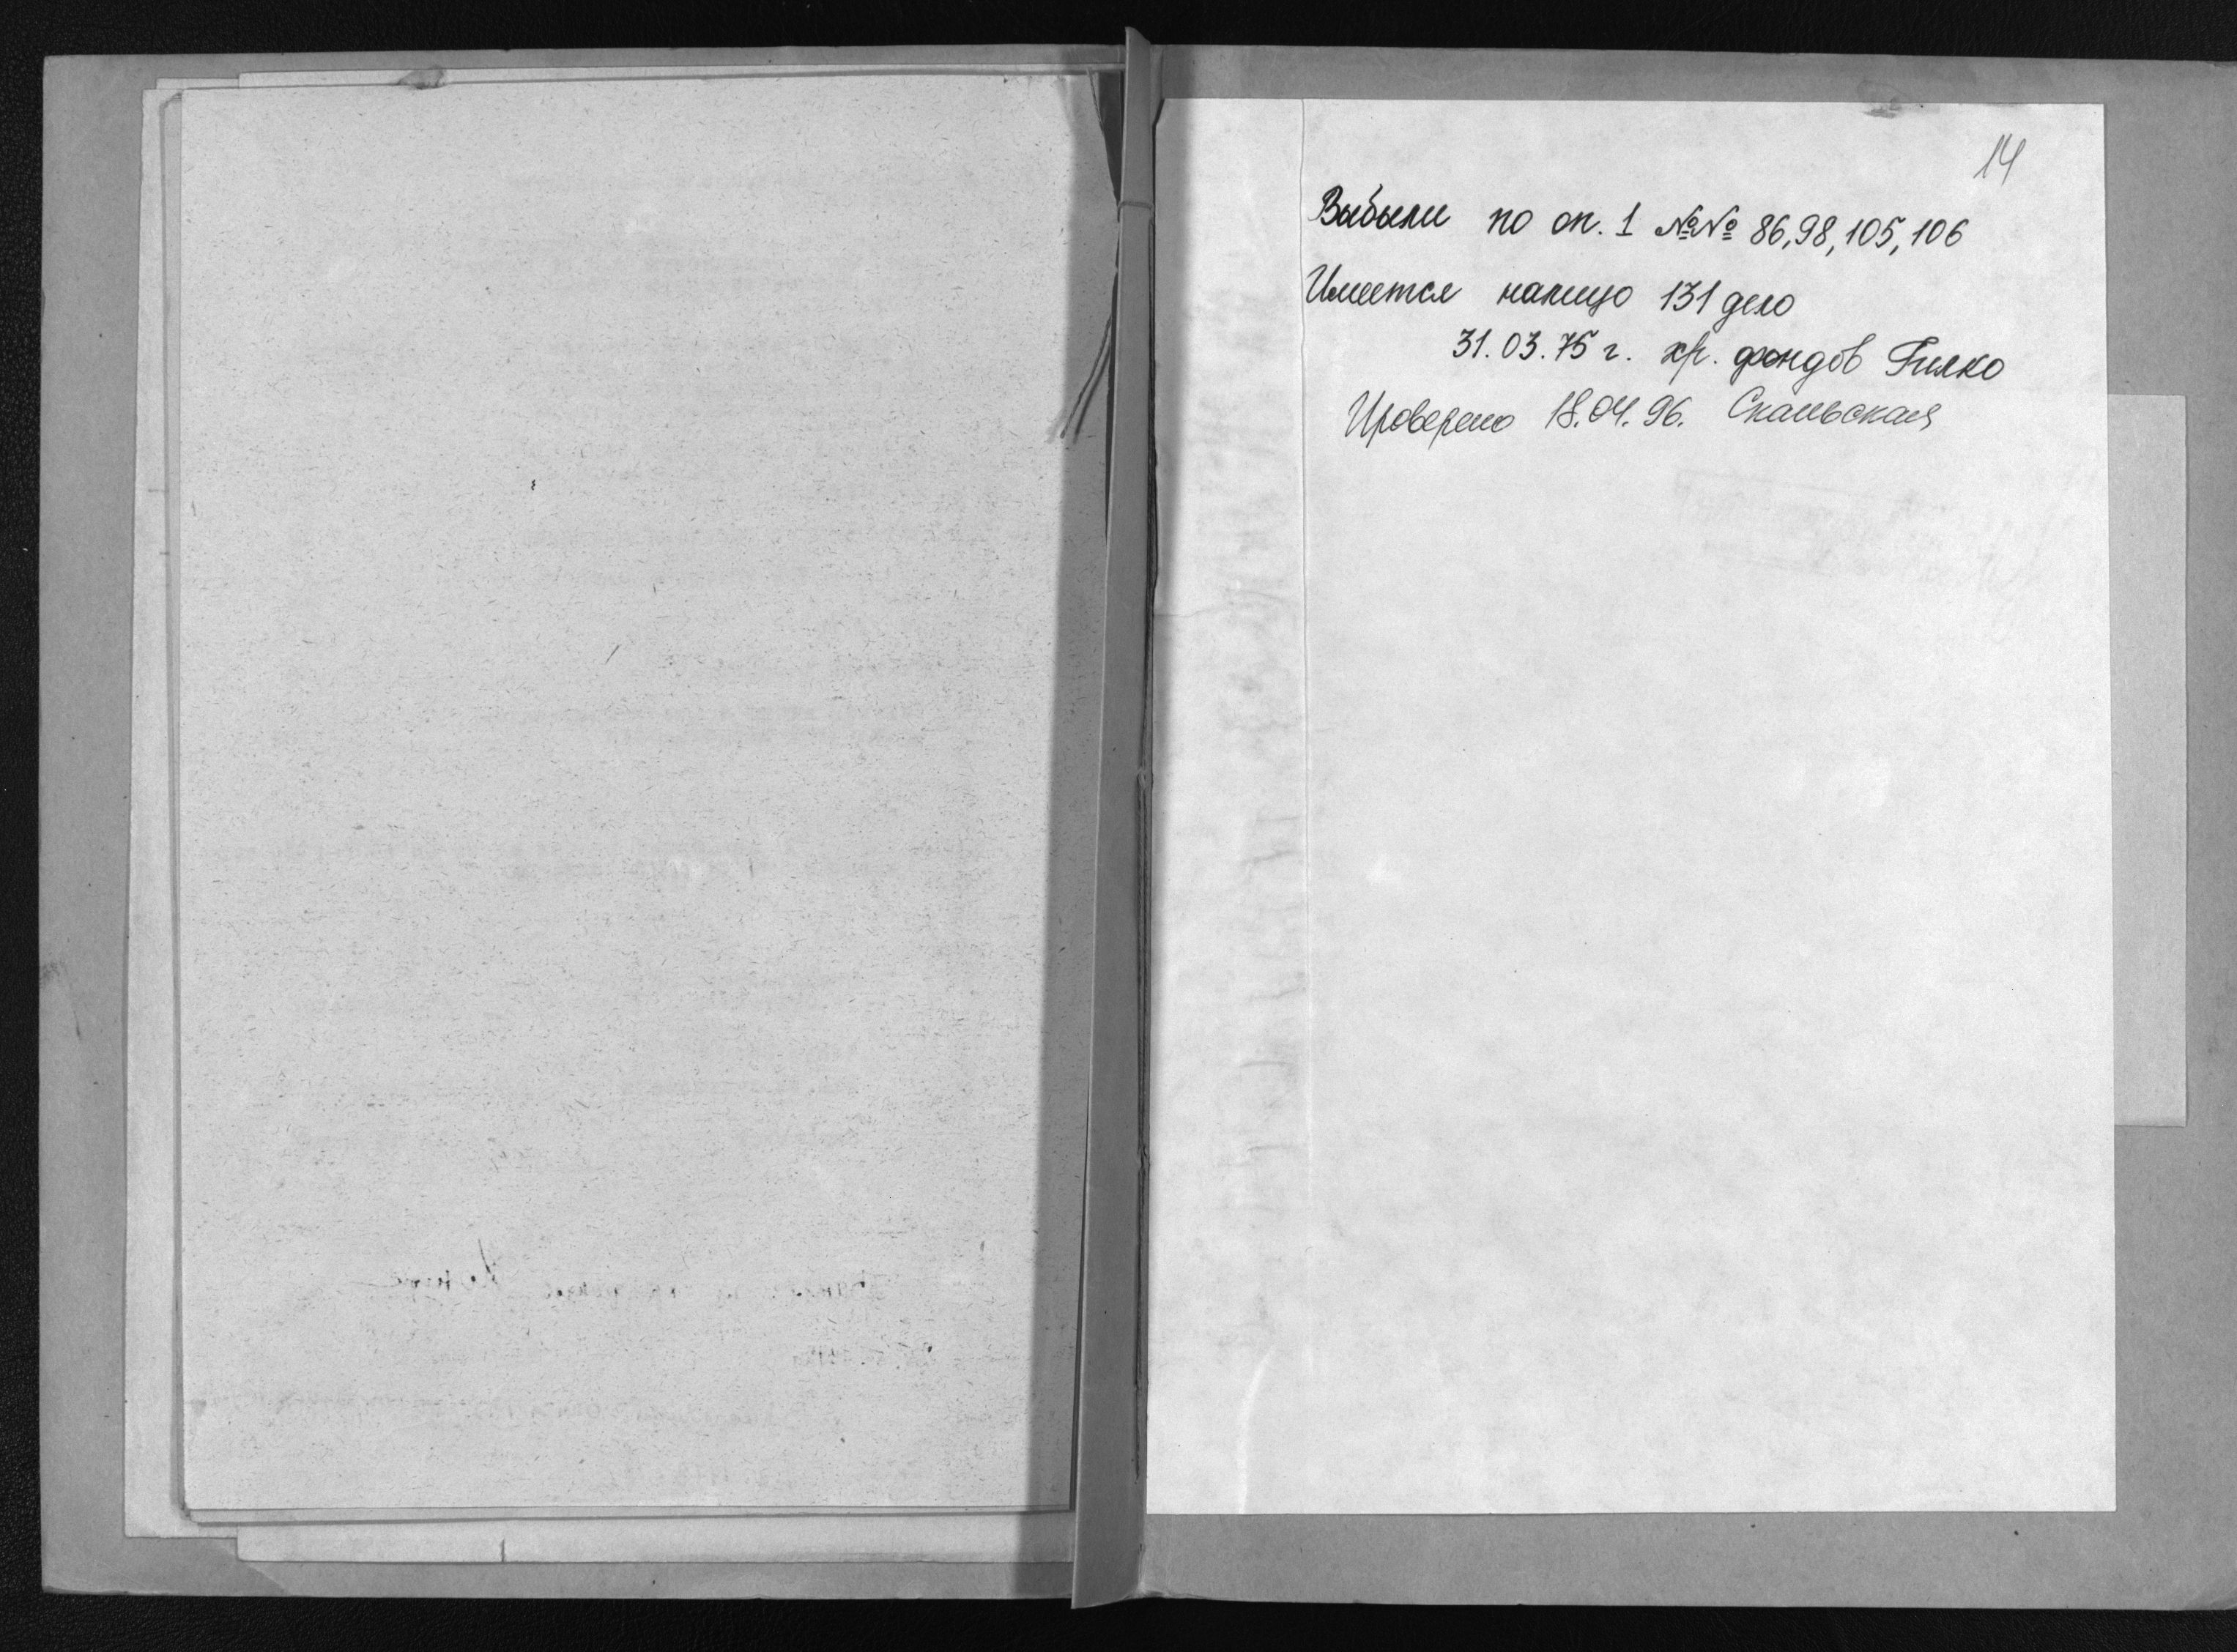 14
Выбыли по оп. 1 №№ 86, 98, 105, 106
Имеется налицо 131 дело
31.03.75 г. хр. фондов Гилко
Проверено 18.04.96. Скальская